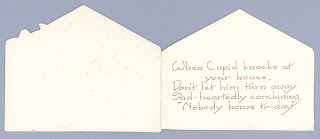 When Cupid knocks at
your house,
Don't let him turn away
Sad-heartedly concluding,
"Nobody home to-day"